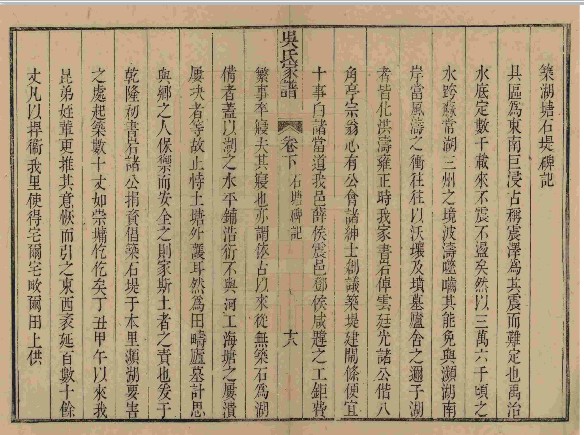 築湖塘石堤碑記
具區為東南巨浸古稱震澤為其震而難定也禹治
水底定數千載來不震不盪矣然以三萬六千頃之
水跨蘇常湖三州之境波濤噬嚙其能免與瀕湖南
岸當風濤之衝往往以沃壤及墳墓廬舍之邇于湖
者皆化洪濤雍正時我家書石倬雲廷光諸公偕八
角亭宗翁心有公會諸紳士創議築堤建閘條便宜
十事白諸當道我邑薛侯震邑鄧侯咸韙之工鉅費
吳氏家譜
卷下 石塘碑記
十八
繁事卒寢夫其寢也亦謂依古以來從無築石為湖
備者蓋以湖之水平鋪浩衍不與河工海塘之屢潰
屢決者等故止恃土塘外護耳然為田疇廬墓計思
與鄉之人保禦而安全之則家斯土者之責也爰于
乾隆初書君諸公捐資倡築石堤于本里瀕湖要害
之處起築數十丈如崇墉仡仡矣丁丑甲午以來我
昆弟姪輩更推其意恢而引之東西袤延百數十餘
丈凡以捍衛我里使得宅爾宅畋爾田上供